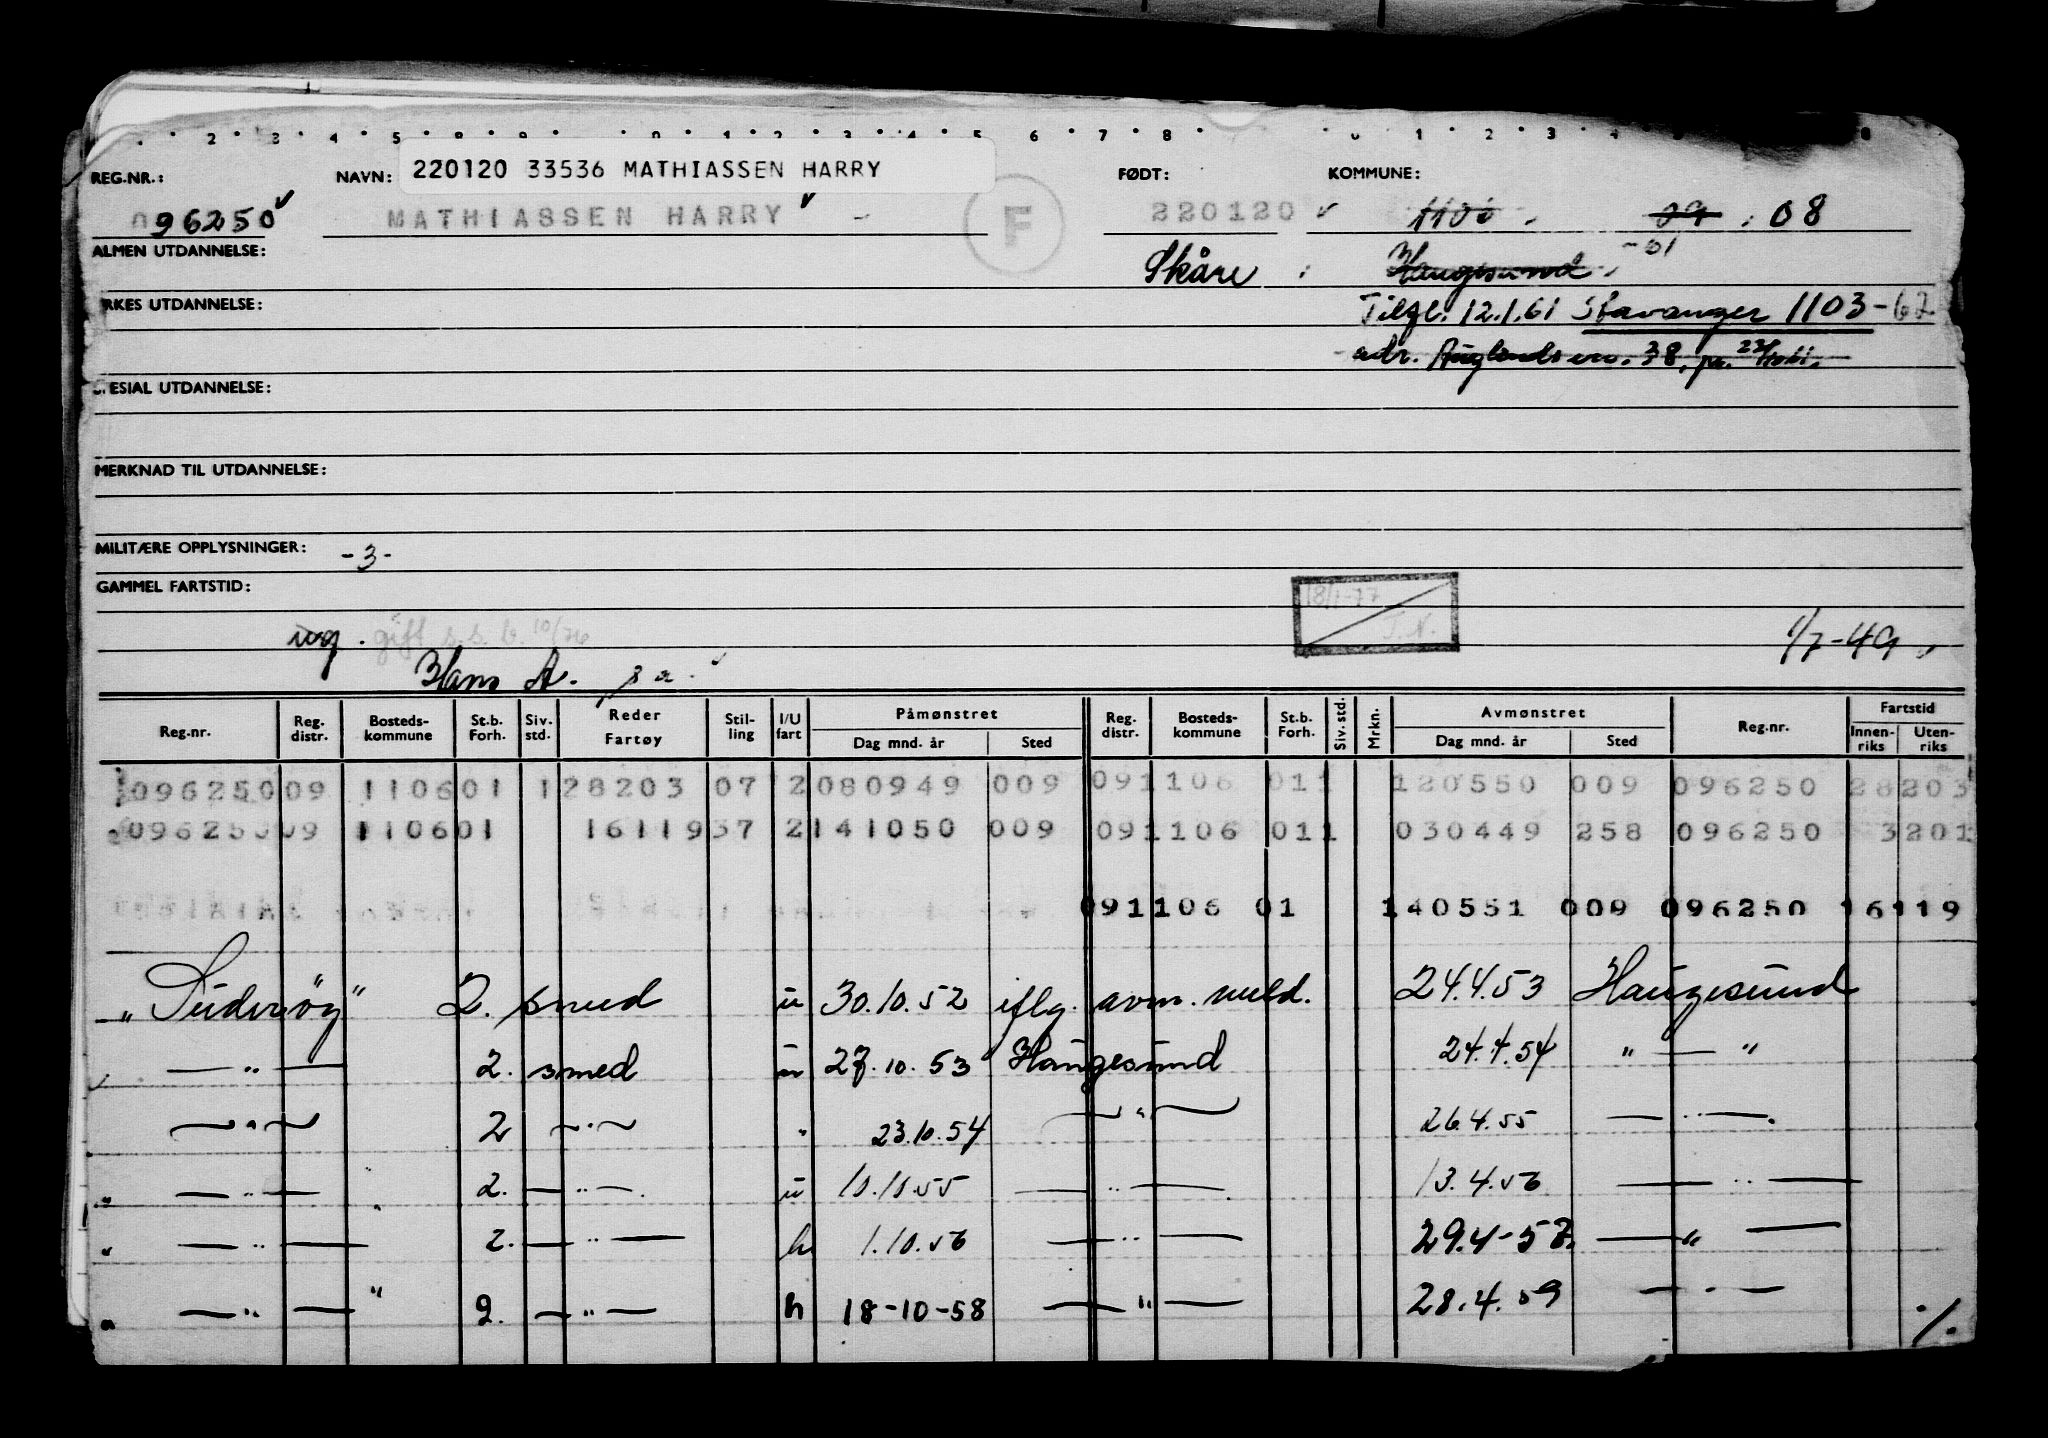 REG.NR.: NAVN: 220120 33536 MATHIASSEN HARRY FØDT: KOMMUNE:
096250 MATHIASSEN HARRY F 220120 09 . 08
ALMEN UTDANNELSE: Skåre Haugesund -51
RKES UTDANNELSE: Tilgl. 12.1.61 Stavanger 1103-62
adr. 38, pr.
SPESIAL UTDANNELSE:
MERKNAD TIL UTDANNELSE:
MILITÆRE OPPLYSNINGER: -3-
GAMMEL FARTSTID:
18/1-77
ug. gift s.s.b. 10/76 1/7-49
Hans A.
Reg.nr. Reg. distr. Bosteds-kommune St.b. Forh. Siv. std. Reder Fartøy Stil-ling I/U fart Påmønstret Dag mnd. år Sted Reg. distr. Bosteds-kommune St.b. Forh. Siv. std. Mrkn. Avmønstret Dag mnd. år Sted Reg.nr. Fartstid Innen-riks Uten-riks
096250 09 1106 01 1 28203 07 2 080949 009 09 1106 01 1 120550 009 096250 28203
096250 09 1106 01 16119 37 2 141050 009 09 1106 01 1 030449 258 096250 3201
09 1106 01 140551 009 096250 16119
„Suderøy" 2. smed u 30.10.52 iflg. avm. meld. 24.4.53 Haugesund
— „ — 2. smed u 27.10.53 Haugesund 24.4.54 „ — "
— „ — 2 — „ — „ 23.10.54 — „ — 26.4.55 — „ —
— „ — 2. — „ — u 10.10.55 — „ — 13.4.56 — „ —
— „ — 2. — „ — h 1.10.56 — „ — 29.4-57. — „ —
— „ — 2. — „ — h 18-10-58 — „ — 28.4.59 — „ — ./.